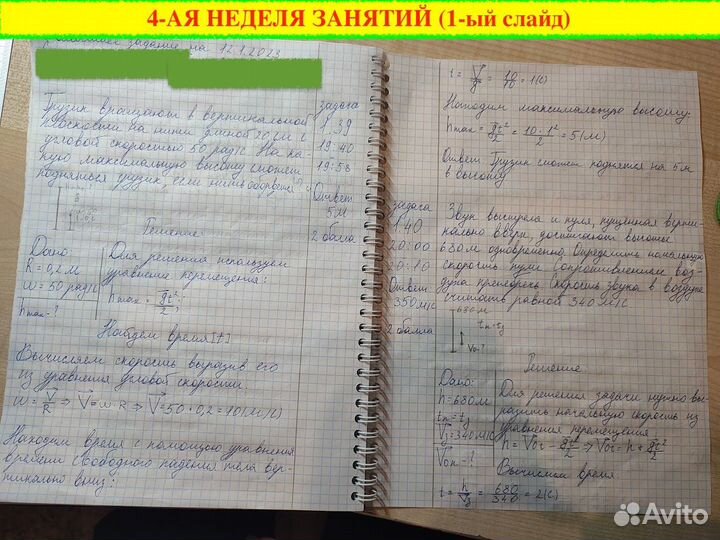 4-АЯ НЕДЕЛЯ ЗАНЯТИЙ (1-ый слайд)
задание на 12.1.2023
Грузик вращают в вертикальной
плоскости на нити длиной 20 см с
угловой скоростью 50 рад/с На ка-
кую максимальную высоту сможет
подняться грузик, если нить оборвется
задача
1.39
19:40
19:56
Ответ
5м
2 балла
Решение
Дано:
R = 0,2 м
w = 50 рад/с
hmax - ?
Для решения используем
уравнение перемещения:
hmax = gt²/2;
Найдем время [t]
Вычисляем скорость выразив его
из уравнения угловой скорости
w = V/R ⇒ V = w·R ⇒ V = 50·0,2 = 10 (м/с)
Находим время с помощью уравнения
времени свободного падения тела вер-
тикально вниз:
t = V/g = 10/10 = 1 (с)
Находим максимальную высоту:
hmax = gt²/2 = 10·1²/2 = 5 (м)
Ответ: Грузик сможет поднятся на 5 м
в высоту
задача
1.40
20:00
20:10
Ответ
350 м/с
2 балла
Звук выстрела и пуля, пущенная верти-
кально вверх, достигают высоты
680 м одновременно. Определить начальную
скорость пули Сопротивлением воз-
духа пренебречь Скорость звука в воздухе
считать равной 340 м/с
680 м
tп = tз
V0 - ?
Решение
Дано:
h = 680 м
tп = tз
Vз = 340 м/с
V0п - ?
Для решения задачи нужно вы-
разить начальную скорость из
уравнения перемещения
h = V0t - gt²/2 ⇒ V0t = h + gt²/2
Вычислим время
t = h/Vз = 680/340 = 2 (с)
Avito